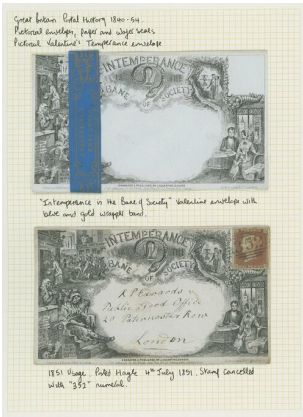 Great Britain Postal History 1840-54.
Pictorial envelopes, paper and wafer seals
Pictorial Valentine's Temperance envelope
INTEMPERANCE
BANE OF SOCIETY
"Intemperance is the Bane of Society" Valentine envelope with
blue and gold wrapper band.
INTEMPERANCE
BANE OF SOCIETY
R P Edwards
Public Good Office
Paternoster Row
London
1851 Usage. Posted Hayle 4th July 1851. Stamp cancelled
with "352" numeral.